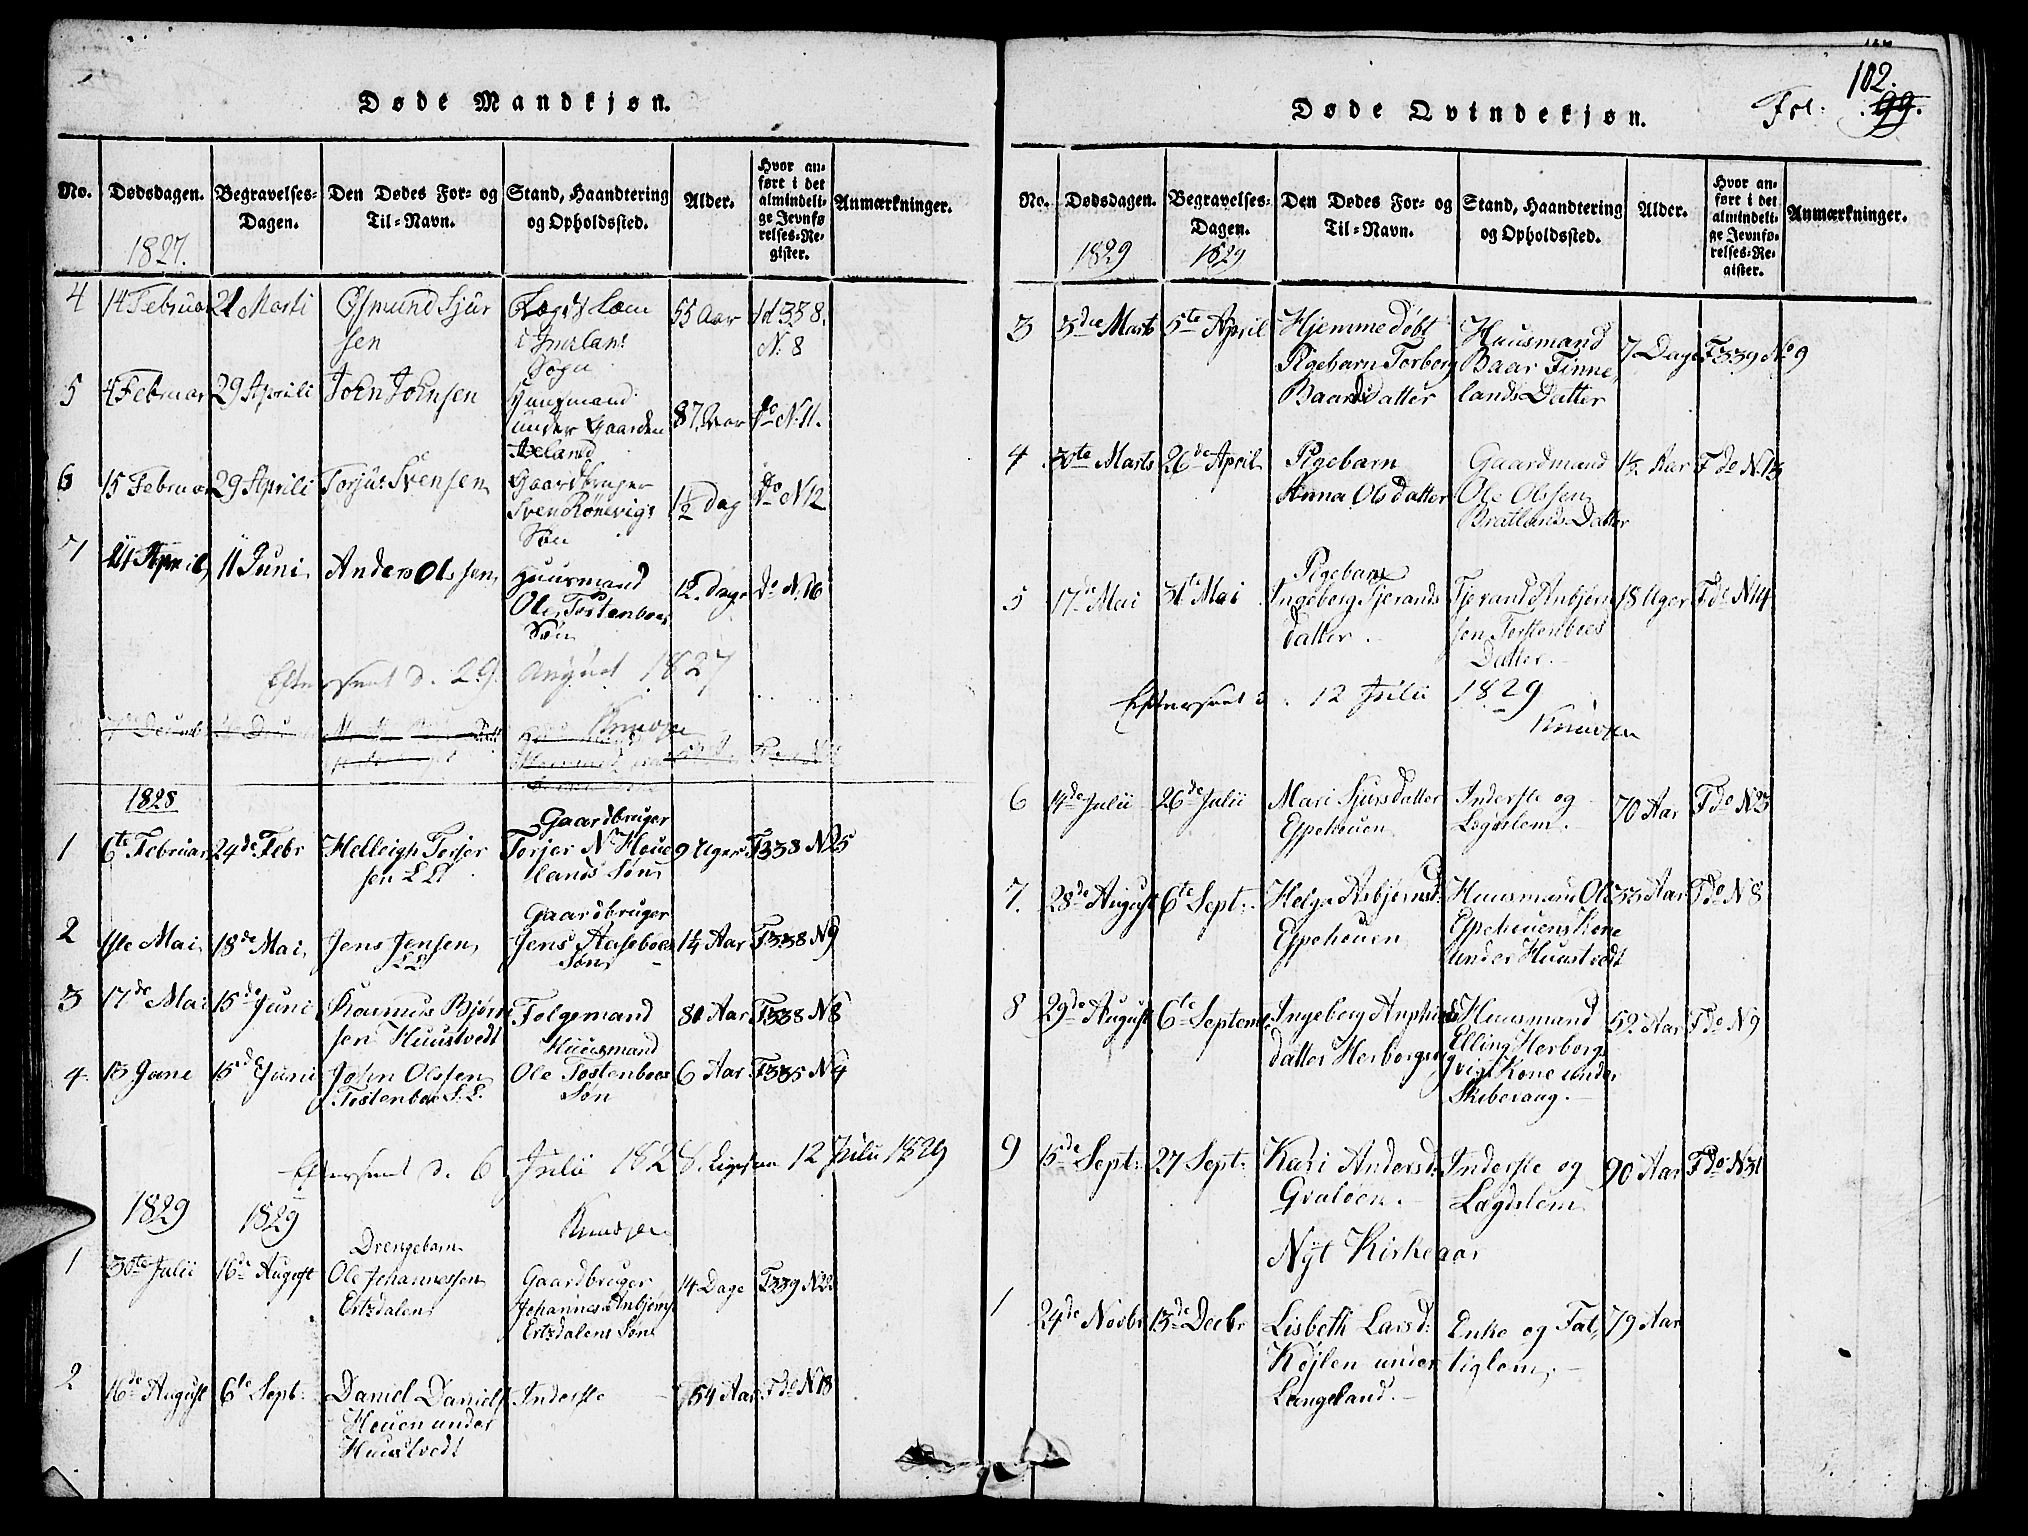 Døde Mandkjøn.
No. Dødsdagen. Begravelses-Dagen. Den Dødes For- og Til-Navn. Stand, Haandtering og Opholdssted. Alder. Hvor anført i det almindelige Jevnførelses-Register. Anmærkninger.
1827.
4 14 Februar 21 Marti Osmund Sjur
sen
55 Aar
N. 8
Sogn
5 4 Februar 29 Aprili John Johnsen Huusmand
under Gaarden
87 Aar do N. 11.
6 15 Februar 29 Aprili Torjus Svensen Gaardbruger
Sven Rønevigs
Søn
1½ Dag do N 12
7 24 April 11 Juni Anders Olssen Huusmand
Ole Tostenboes
Søn
12 Dage do N. 16
Efterseet d. 29 August 1827
Knudsen
1828
1 6te Februar 24de Febr Helleigh Torjer
sen
Gaardbruger
Torjer N. Houe
lands Søn
9 Uger F 338 N 25
2 1ste Mai 18de Mai Jens Jensen
Gaardbruger
Jens Aaseboes
Søn
14 Aar F 338 N 9
3 17de Mai 15de Juni Rasmus Bjørn
sen Huustvedt
Folgemand
80 Aar F 338 N 8
4 13 June 15de Juni John Olssen
Tostenboe
Huusmand
Ole Tostenboes
Søn
6 Aar F 335 N 4
Efterseet d. 6 Julii 1828. Ligesaa 12 Julii 1829
Knudsen
1829 1829
1 30te Julii 16de August Drengebarn
Ole Johannessen
Ertsdalen
Gaardbruger
Johannes Anbjørns
Ertsdalens Søn
14 Dage F 339 N 22
2 16de August 6te Sept: Daniel Daniels
Houen under
Huustvedt
Inderste
54 Aar F do N 18
Døde Qvindekjøn.
Fol: 102.
99.
No. Dødsdagen. Begravelses-Dagen. Den Dødes For- og Til-Navn. Stand, Haandtering og Opholdssted. Alder. Hvor anført i det almindelige Jevnførelses-Register. Anmærkninger.
1829 1829
3 3die Marts 5te April Hjemmedøbt
Pigebarn Torborg
Baards Datter
Huusmand
Baar Finne
lands Datter
7 Dage F 339 No 9
4 30te Marts 26de April Pigebarn
Anna Olsdatter
Gaardmand
Ole Olssen
Bratlands Datter
1½ Aar F do N 13
5 17de Mai 31te Mai Pigebarn
Ingeborg Tjerands
datter.
Tjerand Anbjørn
sen Torstenboes
Datter.
18 Uger F do N 14
Efterseet d. 12 Julii 1829
Knudsen
6 14de Julii 26de Julii Mari Sjursdatter
Espehouen
Inderste og
Lægdslem.
70 Aar F do N 23
7. 28de August 6te Sept: Helga Asbjørnsd:
Espehouen
Huusmand Ole
Espehouens Kone
under Huustvedt
33 Aar F do N 8
8 29de August 6te Septem. Ingeborg
datter Herborgsvig
Huusmand
Elling Herborgs
vigs Kone under
52 Aar F do N 9
9 15de Sept: 27 Sept: Kari Andersd:
Inderste og
Lægdslem
90 Aar F do N 31
Nyt Kirkeaar
1 24de Novbr 13de Decbr Lisbeth Larsd:
under
Langeland.
Enke og Fat
tiglem.
79 Aar